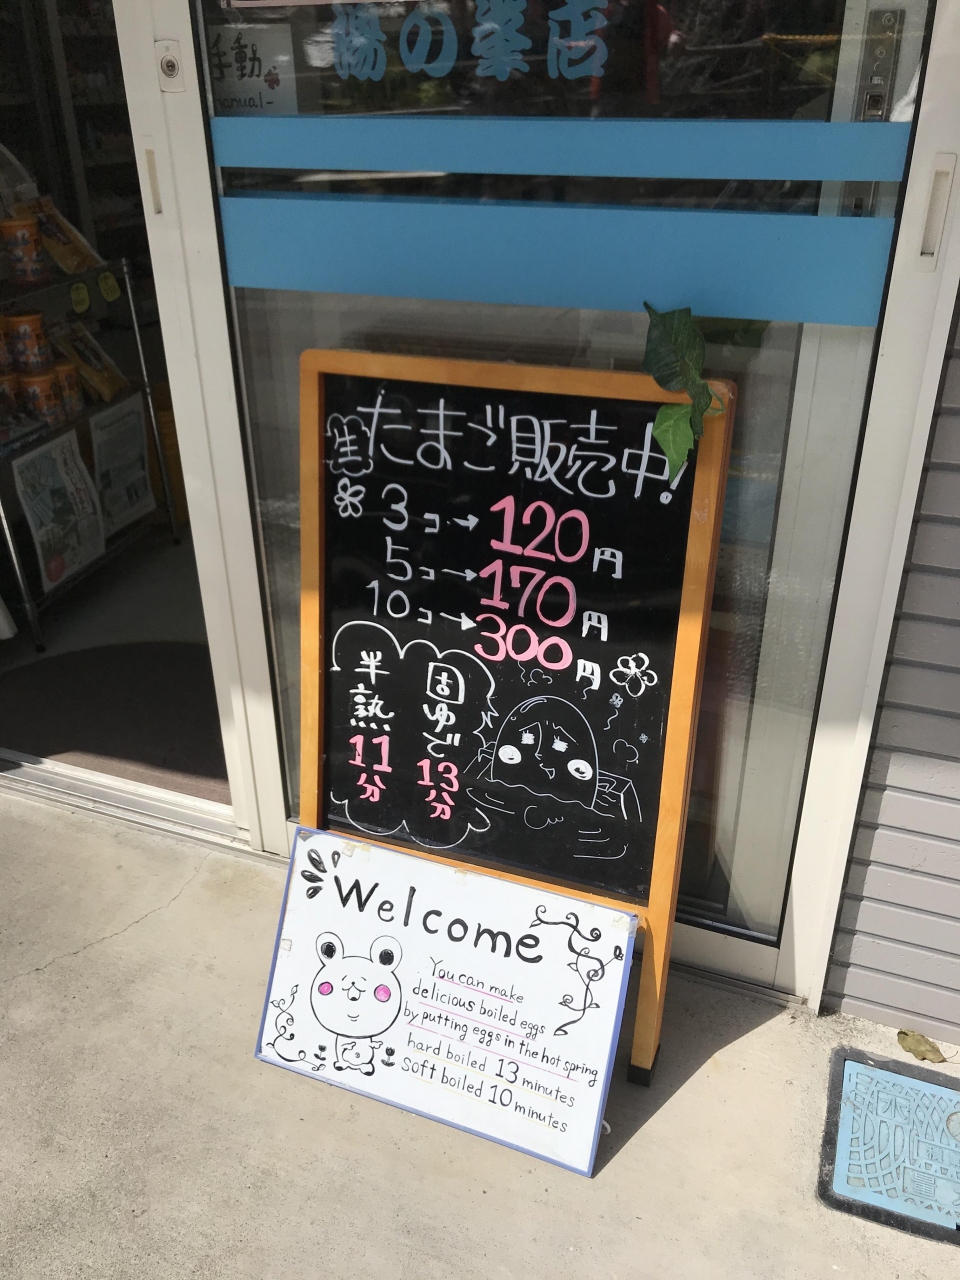 湯の薬店
手動
manual-
生たまご販売中!
3コ→120円
5コ→170円
10コ→300円
半熟11分
固ゆで13分
Welcome
You can make
delicious boiled eggs
by putting eggs in the hot spring
hard boiled 13 minutes
soft boiled 10 minutes